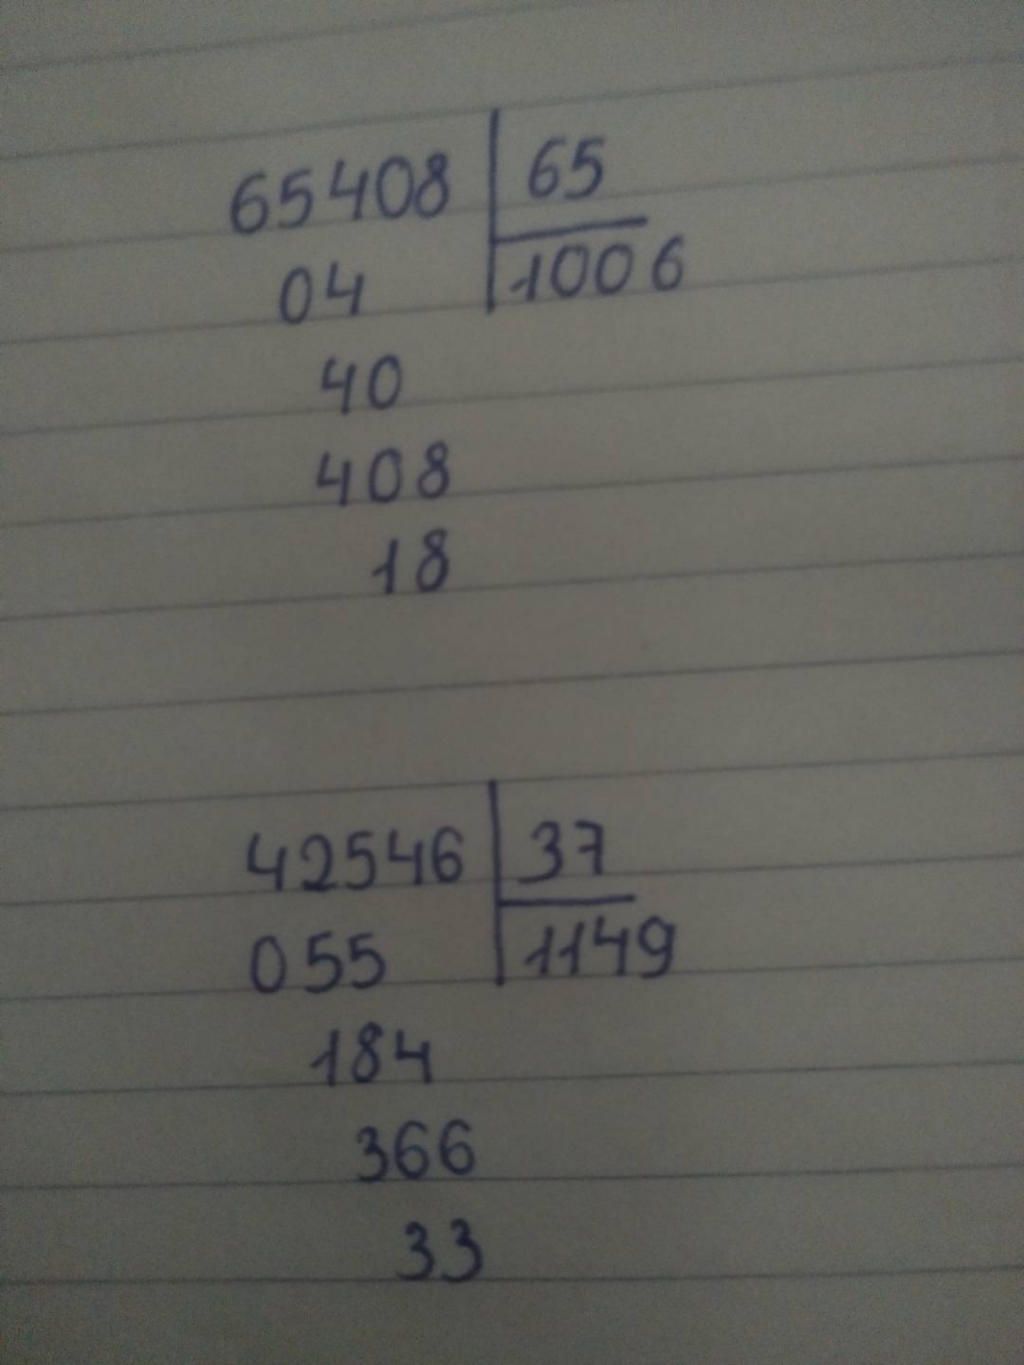 65408 65
04 1006
40
408
18
42546 37
055 1149
184
366
33